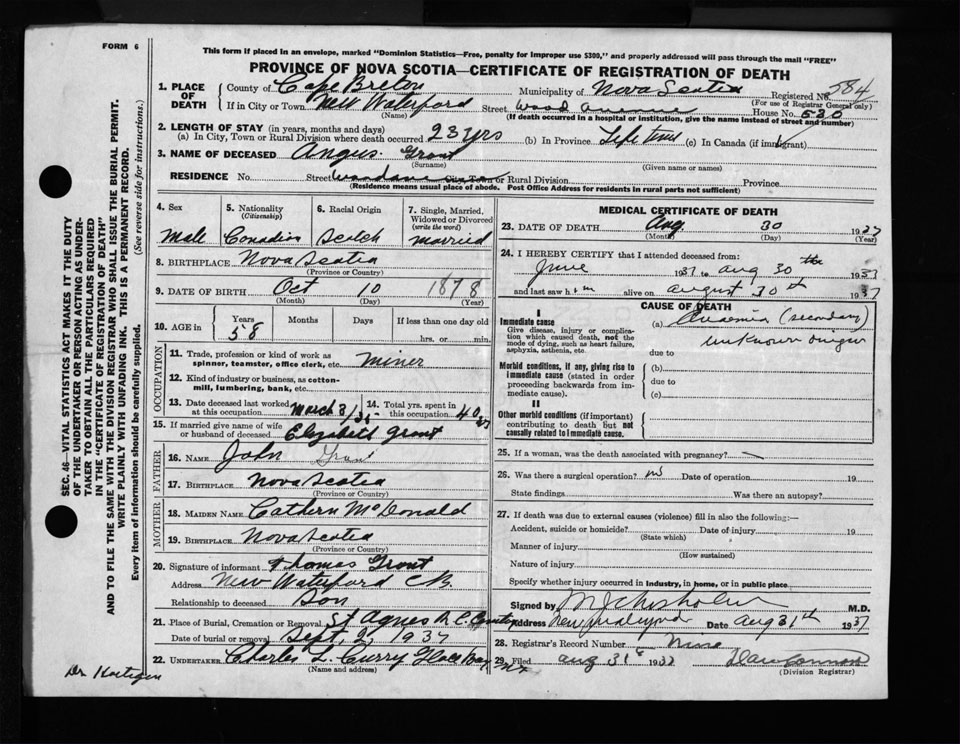 FORM 6
This form if placed in an envelope, marked "Dominion Statistics—Free, penalty for improper use $300," and properly addressed will pass through the mail "FREE"
PROVINCE OF NOVA SCOTIA—CERTIFICATE OF REGISTRATION OF DEATH
1. PLACE OF DEATH
County of Cape Breton Municipality of Nova Scotia Registered No. 584
(For use of Registrar General only)
If in City or Town New Waterford Street Wood House No. 530
(Name) (If death occurred in a hospital or institution, give the name instead of street and number)
2. LENGTH OF STAY (in years, months and days)
(a) In City, Town or Rural Division where death occurred 23 yrs (b) In Province Life time (c) In Canada (if immigrant)
3. NAME OF DECEASED Angus Grant
(Surname) (Given name or names)
RESIDENCE No. Street City, Town or Rural Division Province
(Residence means usual place of abode. Post Office Address for residents in rural parts not sufficient)
4. Sex Male
5. Nationality (Citizenship) Canadian
6. Racial Origin Scotch
7. Single, Married, Widowed or Divorced (write the word) married
8. BIRTHPLACE Nova Scotia
(Province or Country)
9. DATE OF BIRTH Oct 10 1878
(Month) (Day) (Year)
10. AGE in Years 58 Months Days If less than one day old hrs. or min.
OCCUPATION
11. Trade, profession or kind of work as spinner, teamster, office clerk, etc. Miner
12. Kind of industry or business, as cotton-mill, lumbering, bank, etc.
13. Date deceased last worked at this occupation March 8/
14. Total yrs. spent in this occupation 40
15. If married give name of wife or husband of deceased Elizabeth Grant
FATHER
16. NAME John Grant
17. BIRTHPLACE Nova Scotia
(Province or Country)
MOTHER
18. MAIDEN NAME Cathern McDonald
19. BIRTHPLACE Nova Scotia
(Province or Country)
20. Signature of informant Thomas Grant
Address New Waterford CB
Relationship to deceased Son
21. Place of Burial, Cremation or Removal St Agnes R.C.
Date of burial or removal Sept 2, 1937
22. UNDERTAKER Charles L. Curry Glace Bay
(Name and address)
Dr Hartigan
MEDICAL CERTIFICATE OF DEATH
23. DATE OF DEATH Aug. 30 1937
(Month) (Day) (Year)
24. I HEREBY CERTIFY that I attended deceased from:
June 1937 to Aug 30 th 1937
and last saw him alive on August 30th 1937
CAUSE OF DEATH
I
Immediate cause
Give disease, injury or complication which caused death, not the mode of dying, such as heart failure, asphyxia, asthenia, etc.
(a) Anaemia (secondary)
unknown origin
due to
Morbid conditions, if any, giving rise to immediate cause (stated in order proceeding backwards from immediate cause).
(b)
due to
(c)
II
Other morbid conditions (if important) contributing to death but not causally related to immediate cause.
25. If a woman, was the death associated with pregnancy?
26. Was there a surgical operation? no Date of operation 19
State findings Was there an autopsy?
27. If death was due to external causes (violence) fill in also the following:—
Accident, suicide or homicide? Date of injury 19
(State which)
Manner of injury
(How sustained)
Nature of injury
Specify whether injury occurred in industry, in home, or in public place
Signed by M J Chisholm M.D.
Address New Waterford Date Aug 31th 1937
28. Registrar's Record Number
29. Filed Aug 31st 1937
(Division Registrar)
SEC. 46—VITAL STATISTICS ACT MAKES IT THE DUTY
OF THE UNDERTAKER OR PERSON ACTING AS UNDER-
TAKER TO OBTAIN ALL THE PARTICULARS REQUIRED
IN THE "CERTIFICATE OF REGISTRATION OF DEATH"
AND TO FILE THE SAME WITH THE DIVISION REGISTRAR WHO SHALL ISSUE THE BURIAL PERMIT.
WRITE PLAINLY WITH UNFADING INK. THIS IS A PERMANENT RECORD.
Every item of information should be carefully supplied. (See reverse side for instructions.)